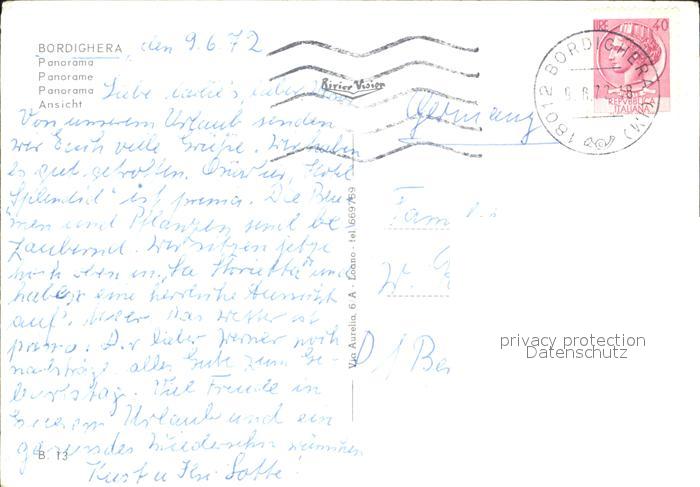 BORDIGHERA, den 9.6.72
Panorama
Panorama
Panorame
Panorama
Ansicht
Liebe
Von unserem Urlaub senden
wir Euch viele Grüße. Wir haben
es gut getroffen. Hotel
Splendid" ist prima. Die Blu-
men und Pflanzen sind be-
zaubernd. Wir sitzen jetzt
hoch oben in "La und
haben eine herrliche Aussicht
aufs Meer. Das Wetter ist
prima. Dir lieber Werner noch
nachträgl. alles Gute zum Ge-
burtstag. Viel Freude in
Eurem Urlaub und ein
gesundes Wiedersehn wünschen
Kurt u Lotte!
B. 13
Rivier Vision
Via Aurelia, 6 A - Loano - tel. 669769
LIRE 40
REPVBBLICA
ITALIANA
18012 BORDIGHERA (IM)
Germany
Fam
W.
D / Ber
privacy protection
Datenschutz